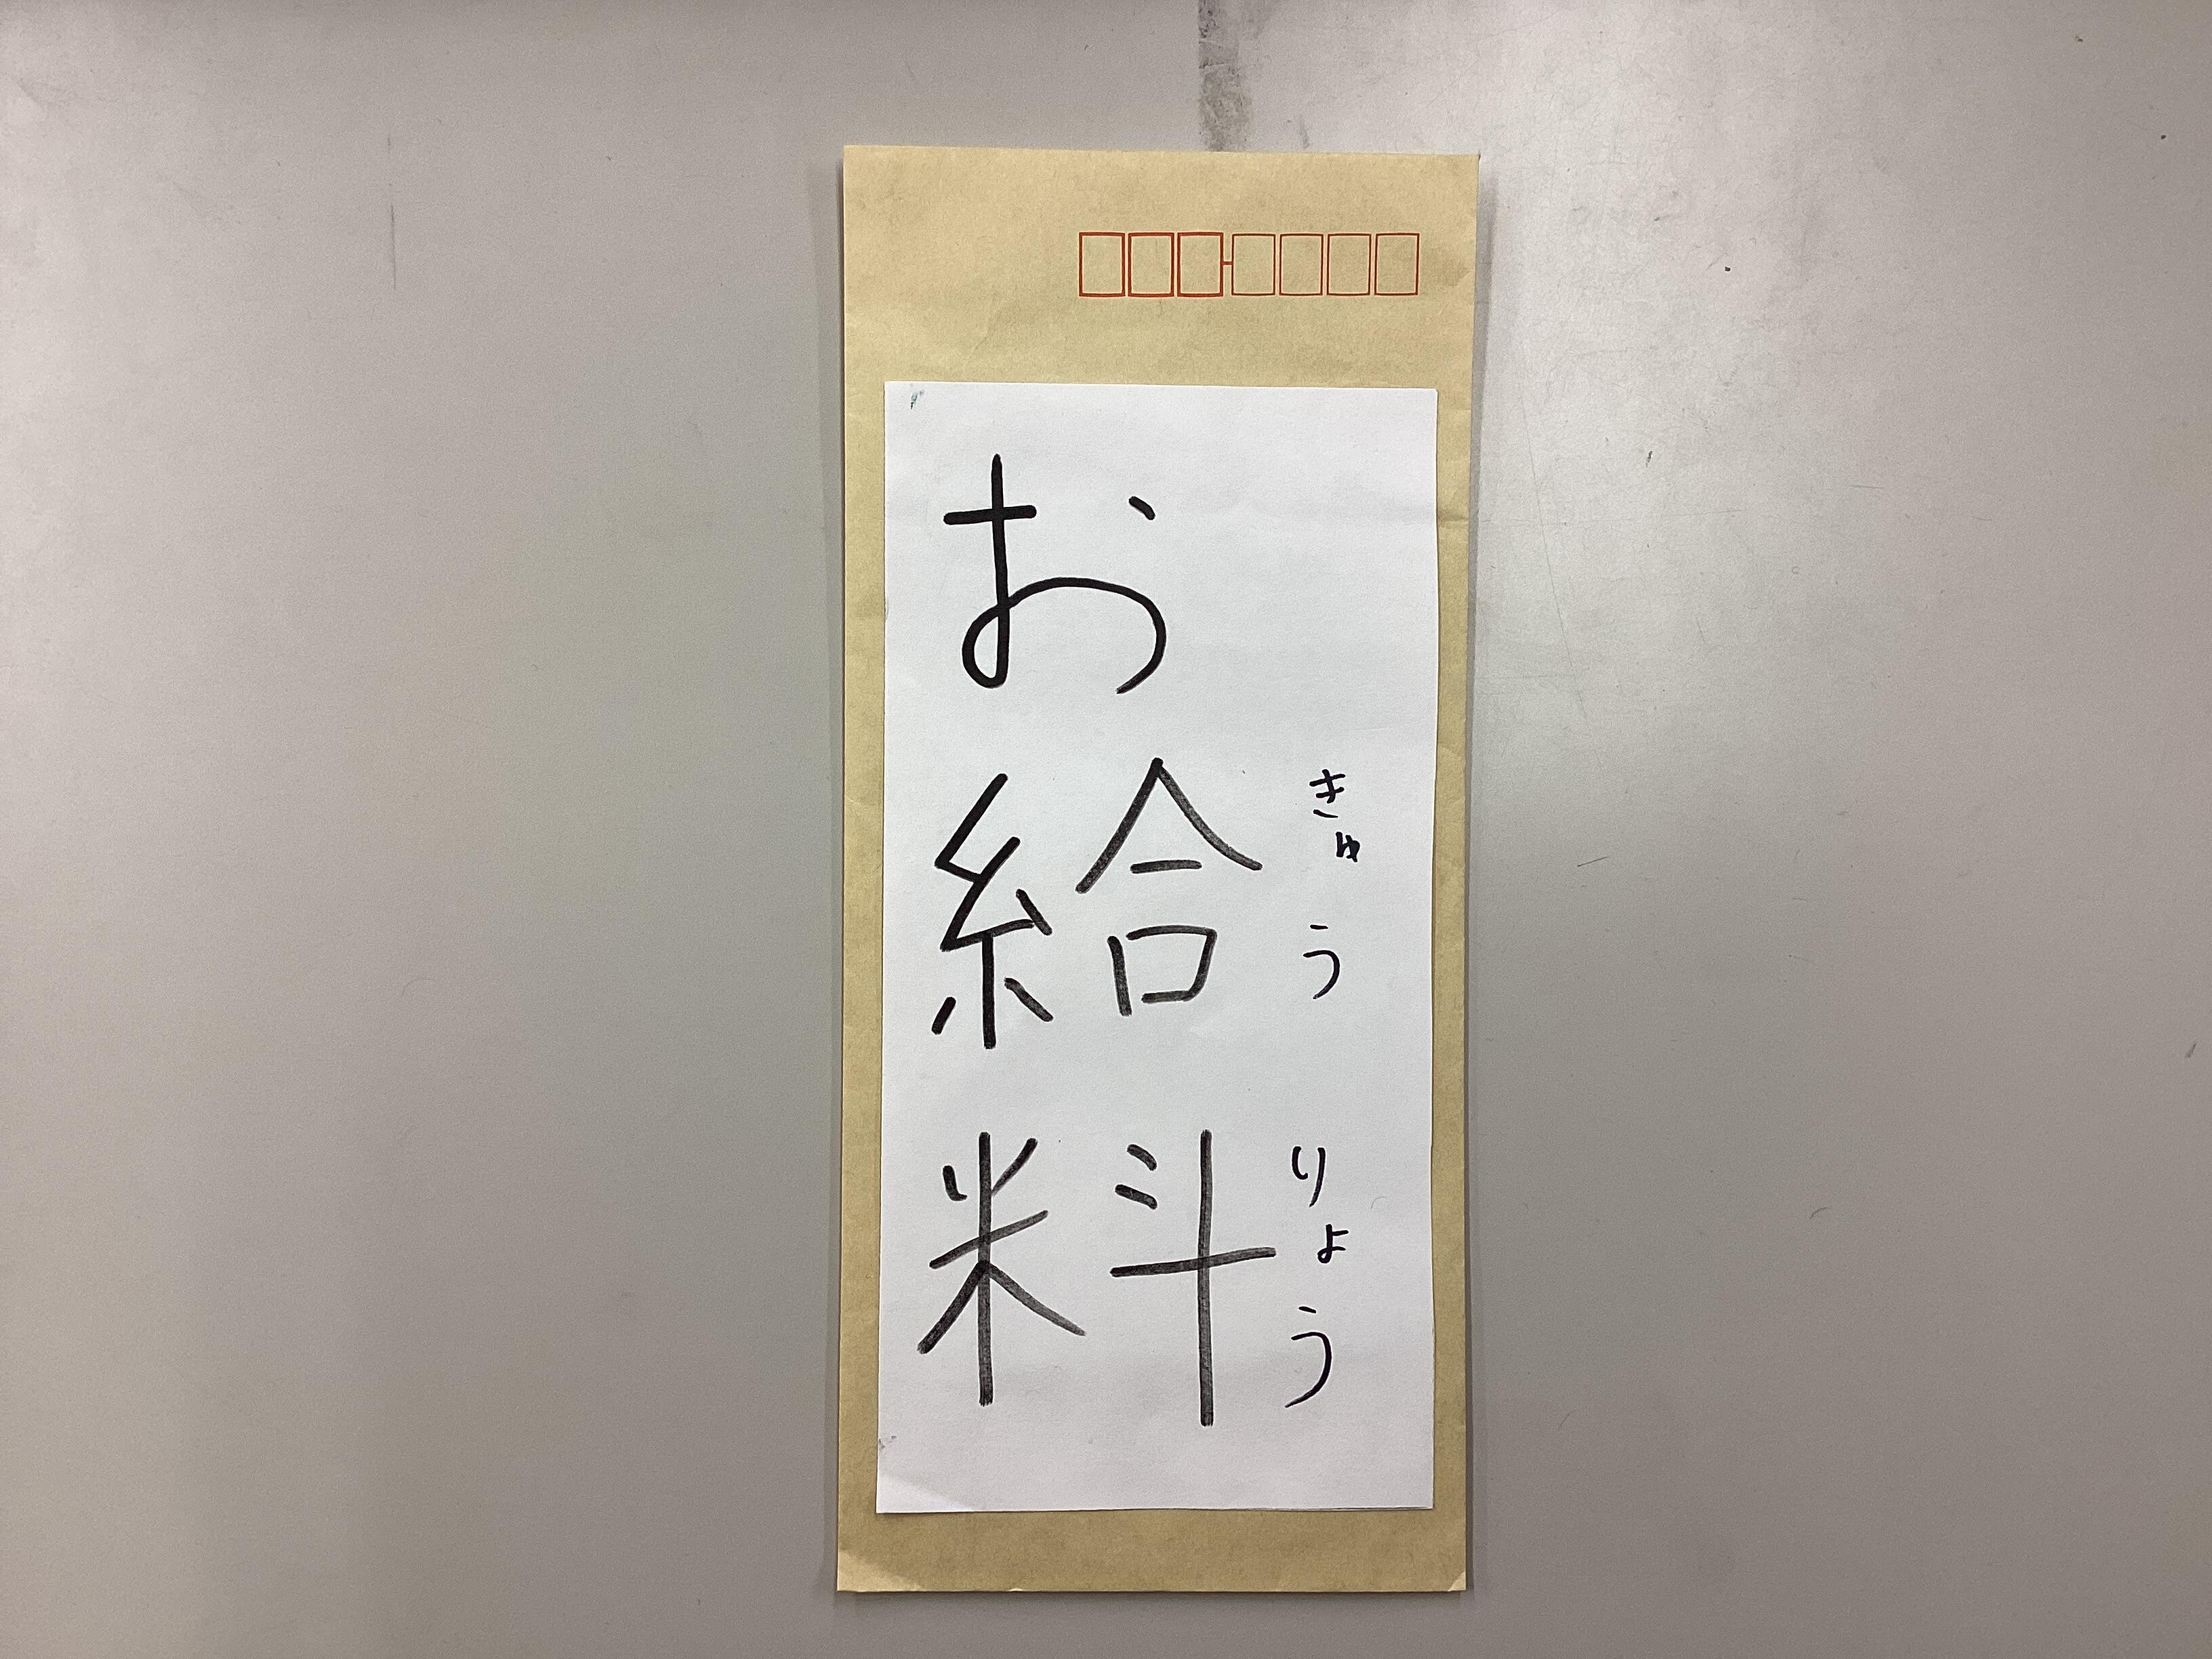 お給料
きゅう
りょう